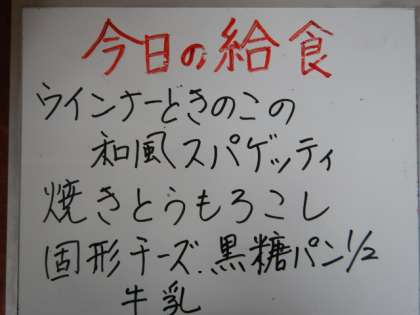 今日の給食
ウインナーときのこの
和風スパゲッティ
焼きとうもろこし
固形チーズ、黒糖パン1/2
牛乳